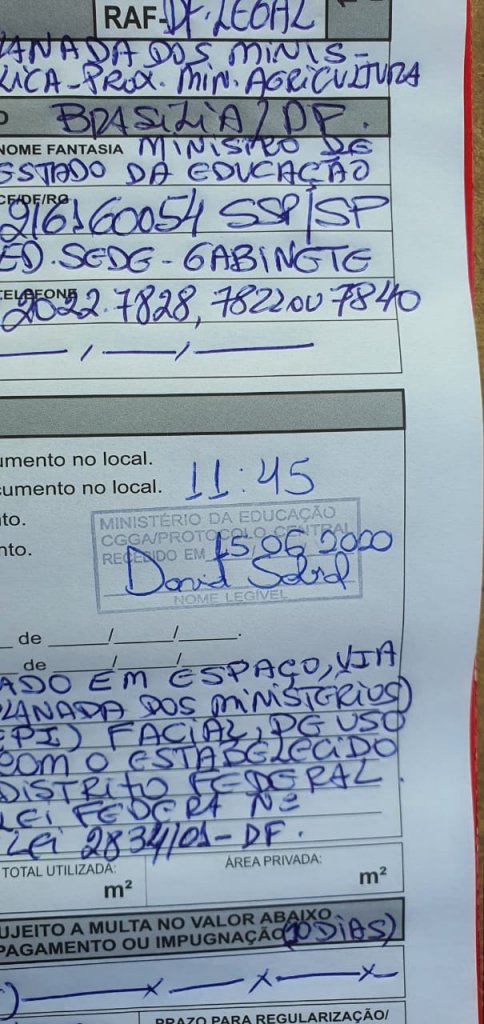 RAF-DF-LEGAL
LANADA DOS MINIS-
LICA-PROX. MIN. AGRICULTURA
BRASILIA/DF.
NOME FANTASIA MINISTRO DE
ESTADO DA EDUCAÇÃO
CF/DF/RG
216160054 SSP/SP
ED. SEDE - GABINETE
TELEFONE
2022.7828, 7822 OU 7840
umento no local.
cumento no local. 11:45
nto.
MINISTÉRIO DA EDUCAÇÃO
CGGA/PROTOCOLO CENTRAL
ento.
RECEBIDO EM 15 06 2020
David Sobral
NOME LEGÍVEL
de ____/____/____.
de ____/____/____
ADO EM ESPAÇO, VIA
LANADA DOS MINISTÉRIOS)
EPI) FACIAL, DE USO
COM O ESTABELECIDO
DISTRITO FEDERAL.
LEI FEDERA Nº
LEI 2834/01-DF.
TOTAL UTILIZADA:
m²
ÁREA PRIVADA:
m²
UJEITO A MULTA NO VALOR ABAIXO
PAGAMENTO OU IMPUGNAÇÃO (10 DIAS)
PRAZO PARA REGULARIZAÇÃO/